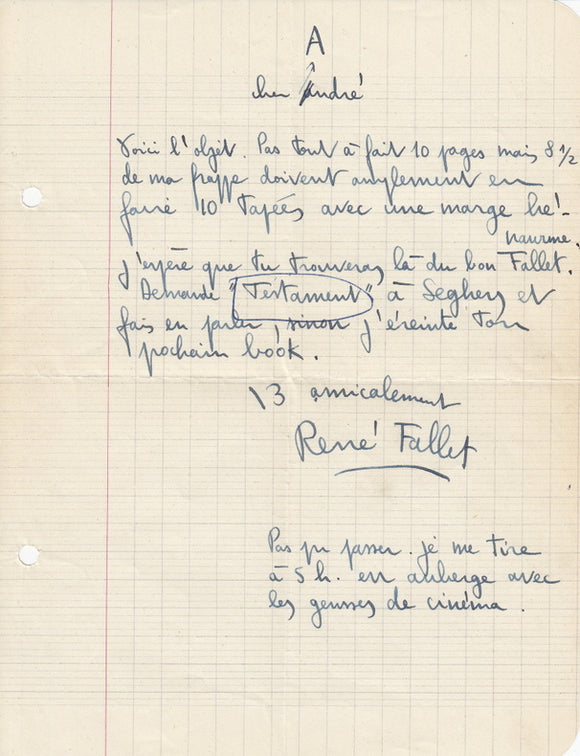 A
cher André
Voici l'objet. Pas tout à fait 10 pages mais 8 1/2
de ma frappe doivent amplement en
faire 10 tapées avec une marge hé-
naurme.
J'espère que tu trouveras là du bon Fallet.
Demande "Testament" à Seghers et
fais en parler, sinon j'éreinte ton
pochain book.
13 amicalement
René Fallet
Pas pu passer. Je me tire
à 5 h. en auberge avec
les gensses de cinéma.